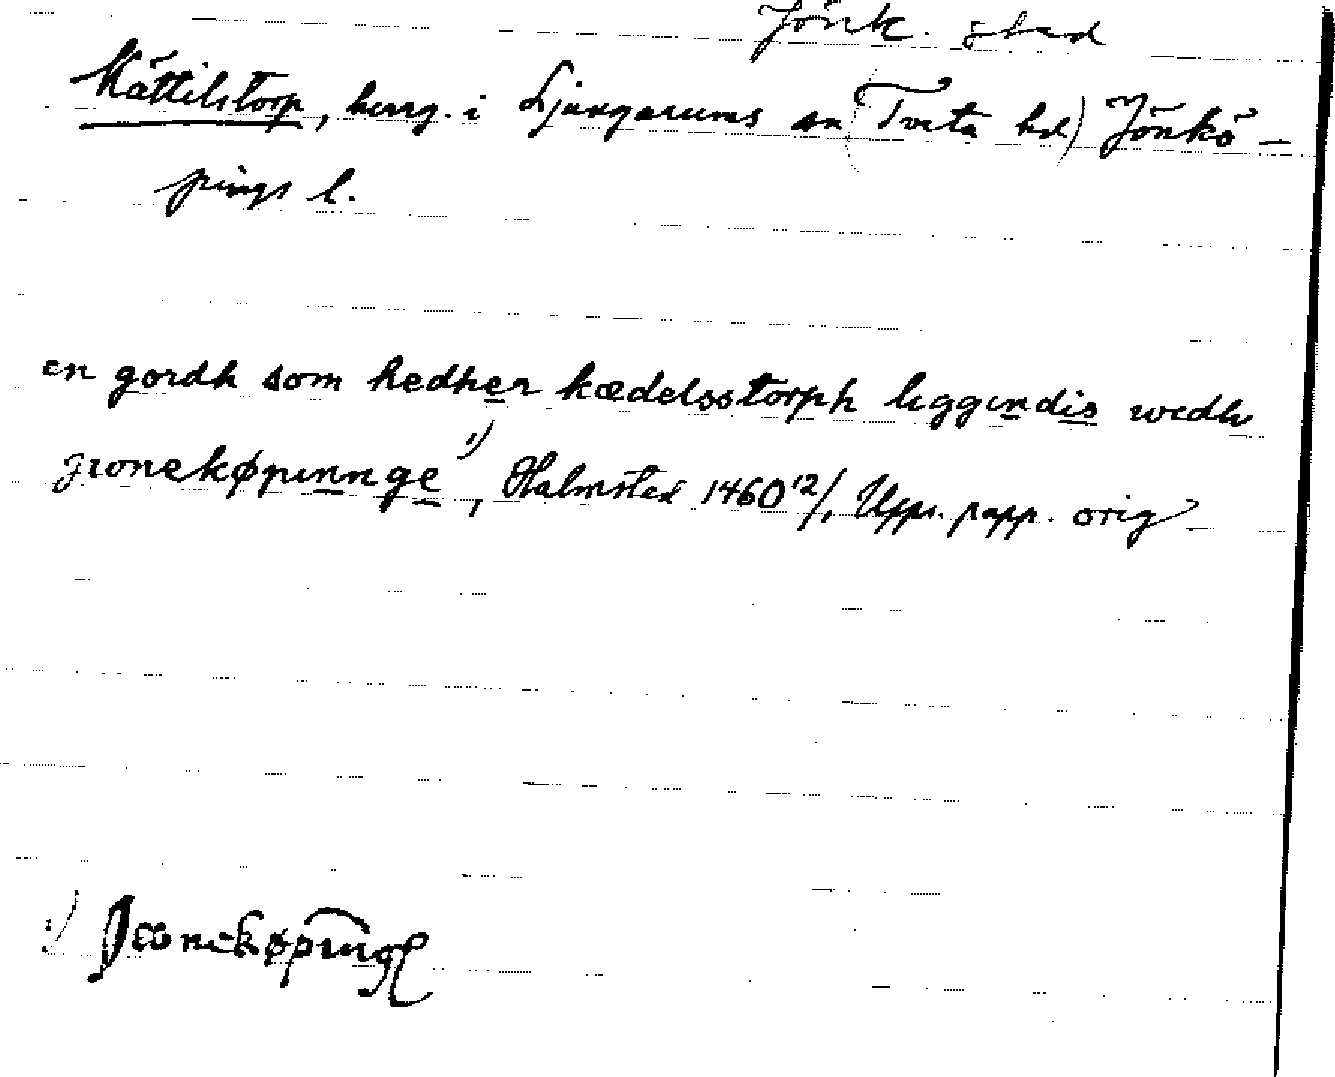 Jönk. stad
Kättilstorp, herrg. i Ljungarums sn (Tveta hd) Jönkö-
pings l.
en gordh som hedher kædelsstorph liggindis wedh
gwonekøpinnge 1), Halmsted 1460 12/, Upps. papp. orig
1) Jwonekøping